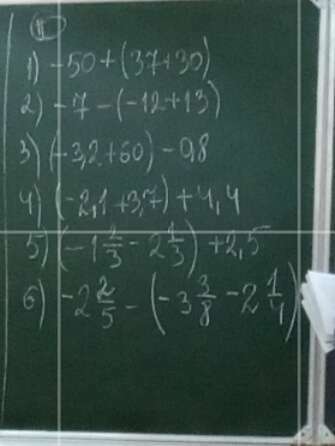 II
1) -50+(37+30)
2) -7-(-12+13)
3) (-3,2+60)-9,8
4) (-2,1+3,7)+4,4
5) (-1 2/3 - 2 1/3)+2,5
6) -2 2/5 - (-3 3/8 - 2 1/4)